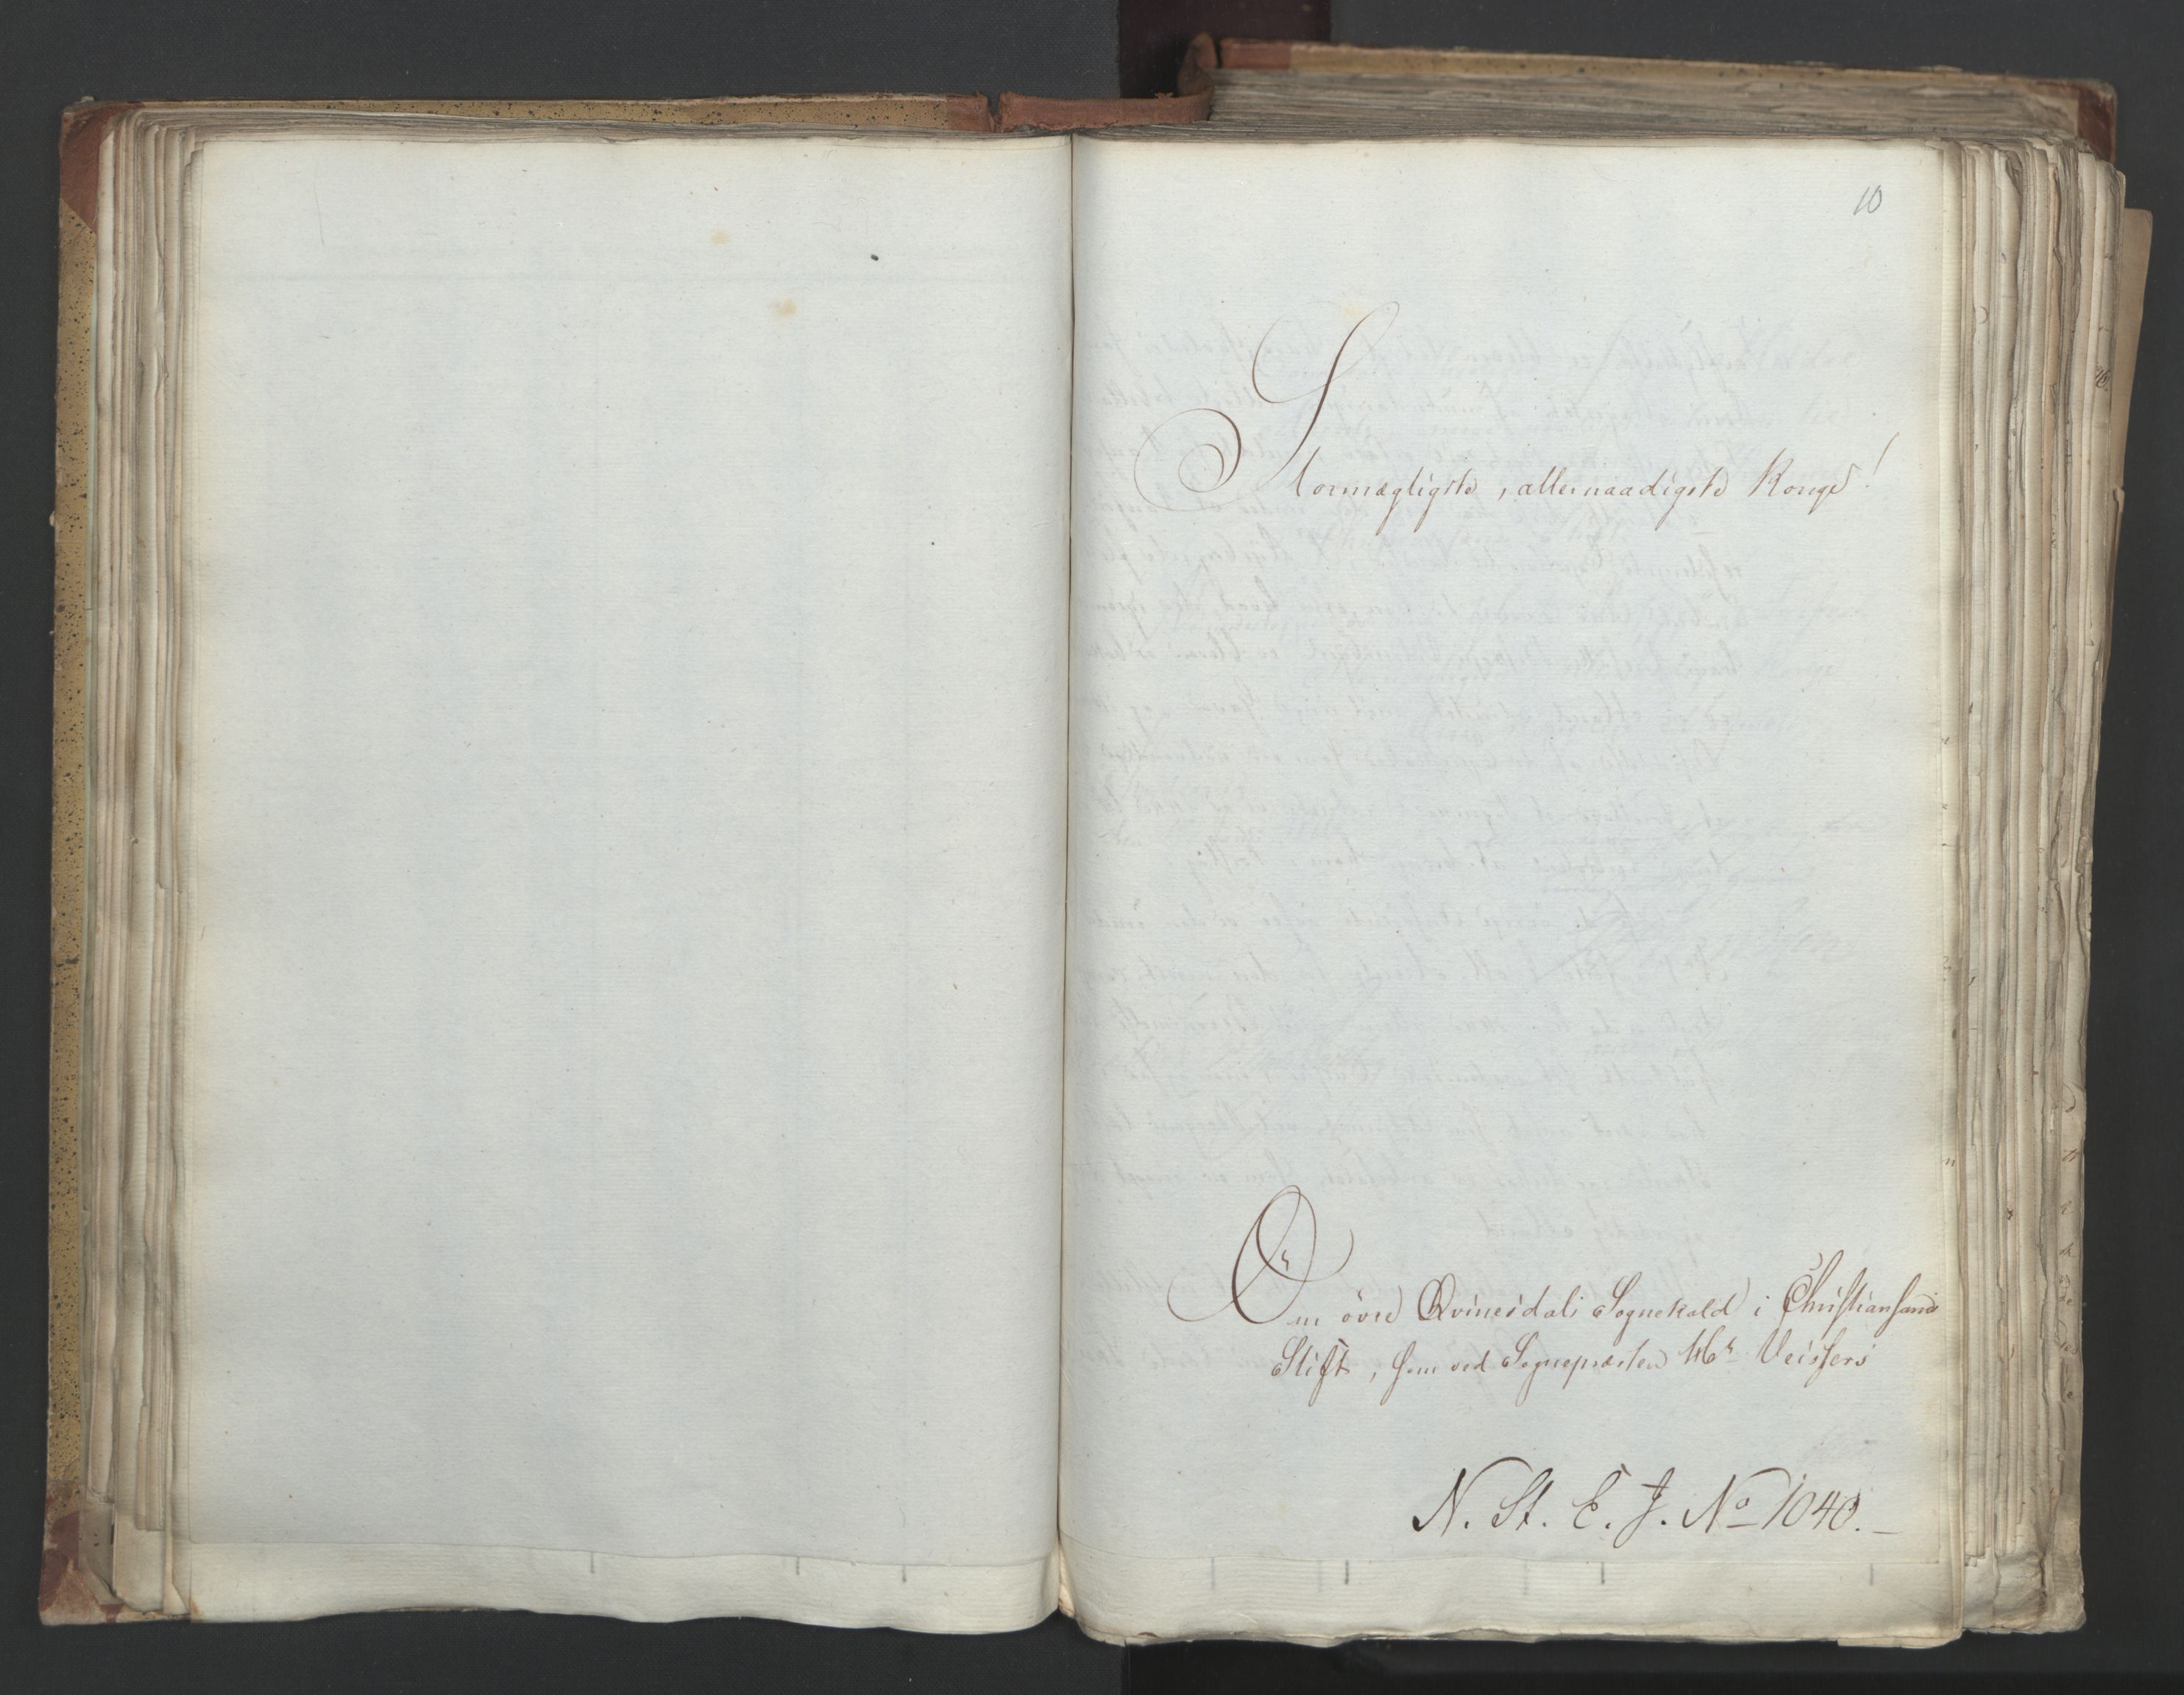 10
Stormægtigste, allernaadigste Konge!
Om övre Qvinesdals Sognekald i Christiansands
Stift, som ved Sognepræsten Hr Veissers
N. St. E. J. No 1040.